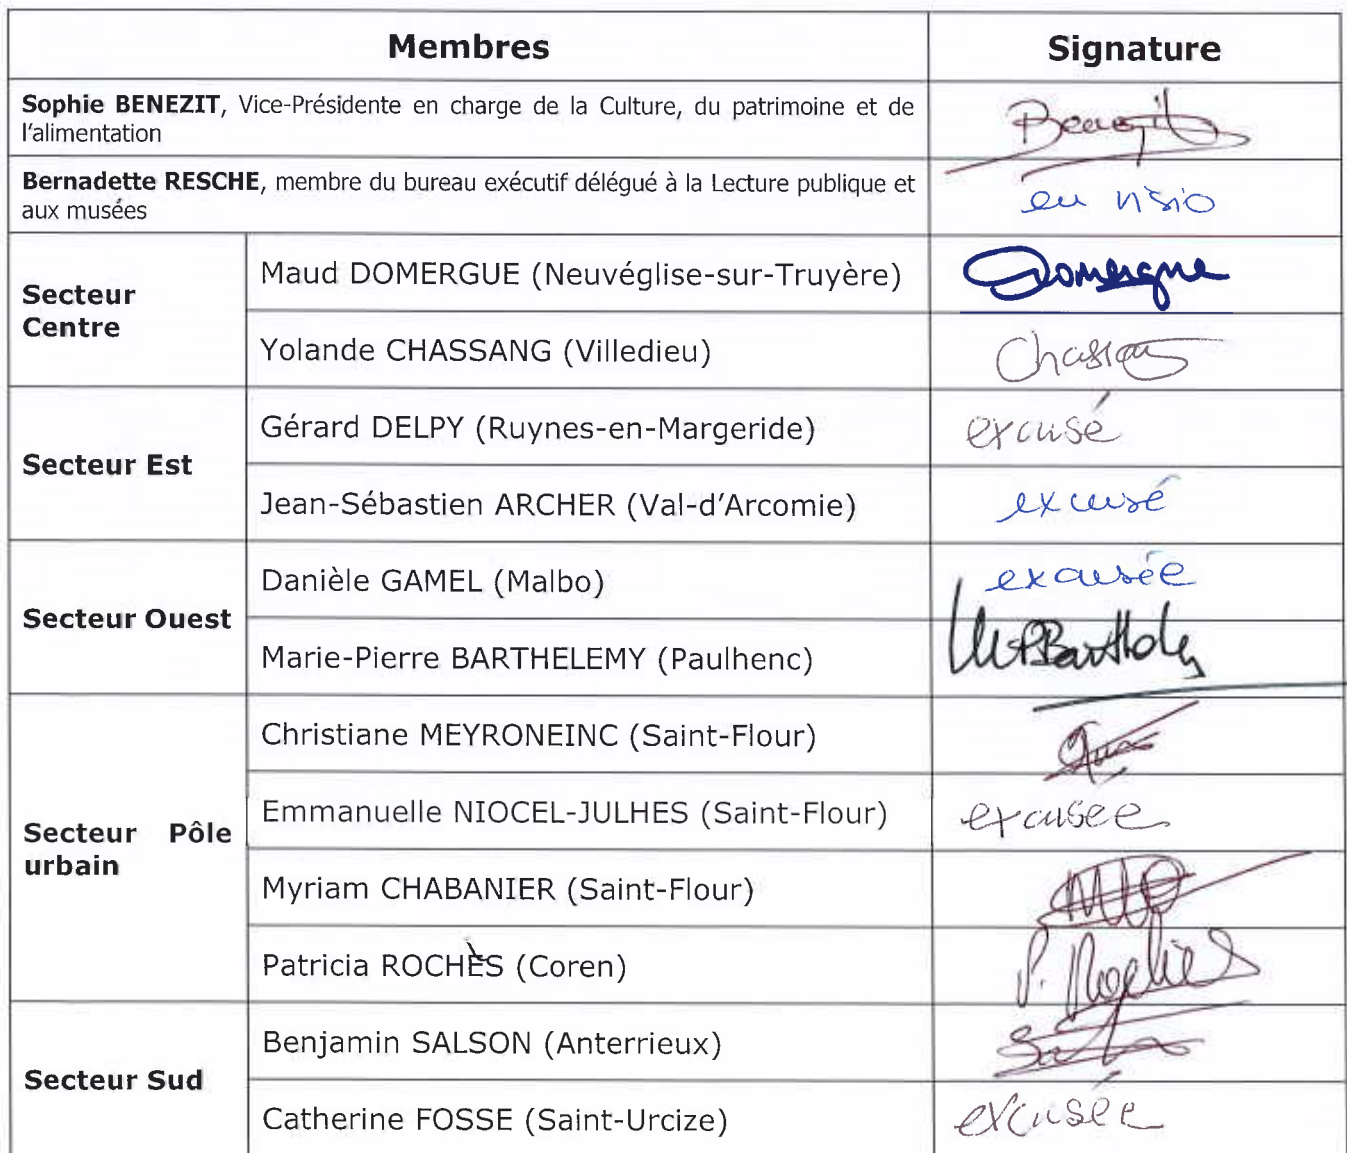 Membres Signature
Sophie BENEZIT, Vice-Présidente en charge de la Culture, du patrimoine et de
l'alimentation
Benezit
Bernadette RESCHE, membre du bureau exécutif délégué à la Lecture publique et
aux musées
en visio
Secteur
Centre
Maud DOMERGUE (Neuvéglise-sur-Truyère) Domergue
Yolande CHASSANG (Villedieu) Chassang
Secteur Est
Gérard DELPY (Ruynes-en-Margeride) excusé
Jean-Sébastien ARCHER (Val-d'Arcomie) excusé
Secteur Ouest
Danièle GAMEL (Malbo) excusée
Marie-Pierre BARTHELEMY (Paulhenc)
Secteur Pôle
urbain
Christiane MEYRONEINC (Saint-Flour)
Emmanuelle NIOCEL-JULHES (Saint-Flour) excusée
Myriam CHABANIER (Saint-Flour)
Patricia ROCHÈS (Coren) P. Rochès
Secteur Sud
Benjamin SALSON (Anterrieux)
Catherine FOSSE (Saint-Urcize) excusée